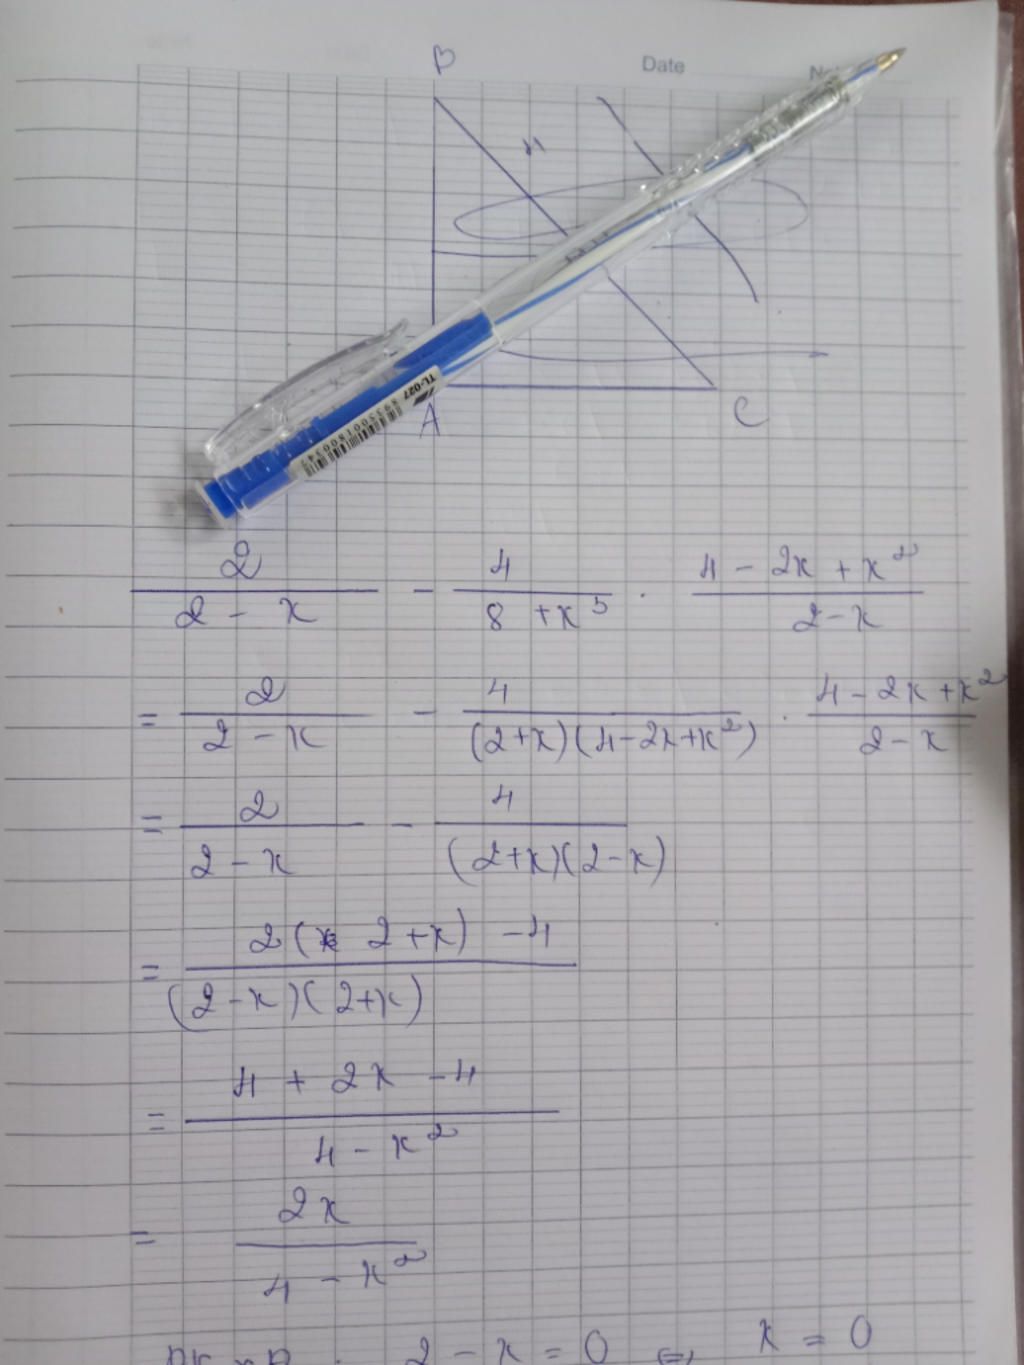 Date
B
A
C
TL-027
2/(2 - x) - 4/(8 + x³) . (4 - 2x + x²)/(2 - x)
= 2/(2 - x) - 4/((2+x)(4-2x+x²)) . (4-2x+x²)/(2-x)
= 2/(2-x) - 4/((2+x)(2-x))
= (2(2+x) -4)/((2-x)(2+x))
= (4 + 2x - 4)/(4 - x²)
= 2x/(4 - x²)
2 - x = 0 ⇔ x = 0